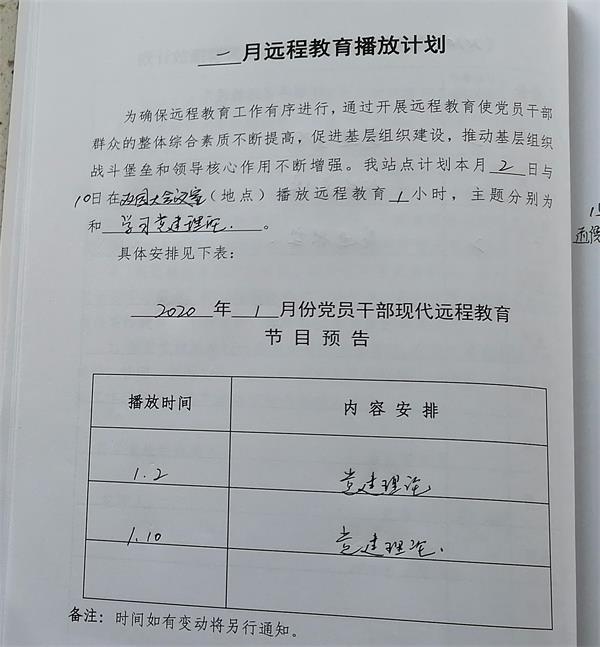 一月远程教育播放计划
为确保远程教育工作有序进行，通过开展远程教育使党员干部
群众的整体综合素质不断提高，促进基层组织建设，推动基层组织
战斗堡垒和领导核心作用不断增强。我站点计划本月2日与
10日在园大会议室（地点）播放远程教育1小时，主题分别为
和学习党建理论.。
具体安排见下表：
2020年1月份党员干部现代远程教育
节目预告
播放时间 内容安排
1.2 党建理论
1.10 党建理论.
备注：时间如有变动将另行通知。